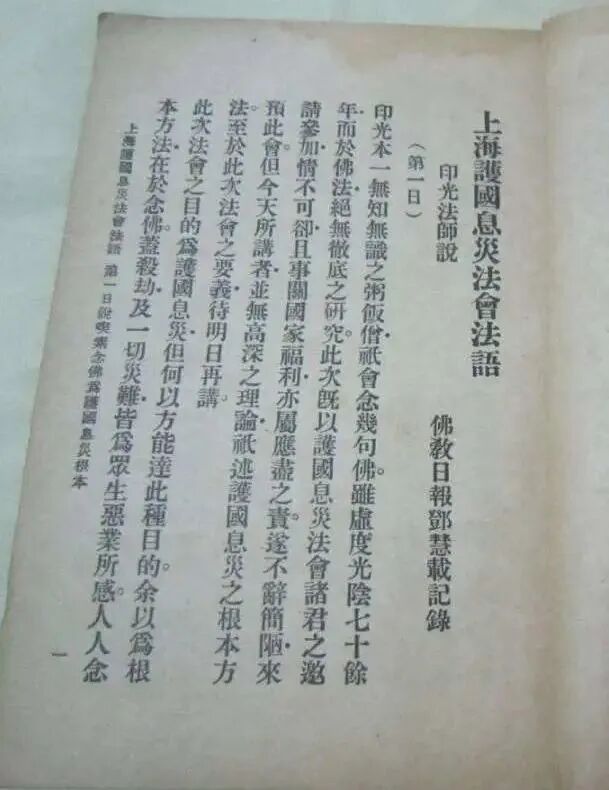 上海護國息災法會法語
印光法師說　佛敎日報鄧慧載記錄
（第一日）
印光本一無知無識之粥飯僧。祇會念幾句佛。雖虛度光陰七十餘
年。而於佛法。絕無徹底之研究。此次旣以護國息災法會諸君之邀
請參加。情不可卻。且事關國家福利。亦屬應盡之責。遂不辭簡陋。來
預此會。但今天所講者。並無高深之理論。祇述護國息災之根本方
法。至於此次法會之要義。待明日再講。
此次法會之目的。爲護國息災。但何以方能達此種目的。余以爲根
本方法。在於念佛。蓋殺劫。及一切災難。皆爲眾生惡業所感。人人念
上海護國息災法會法語　第一日說喫素念佛爲護國息災根本
一